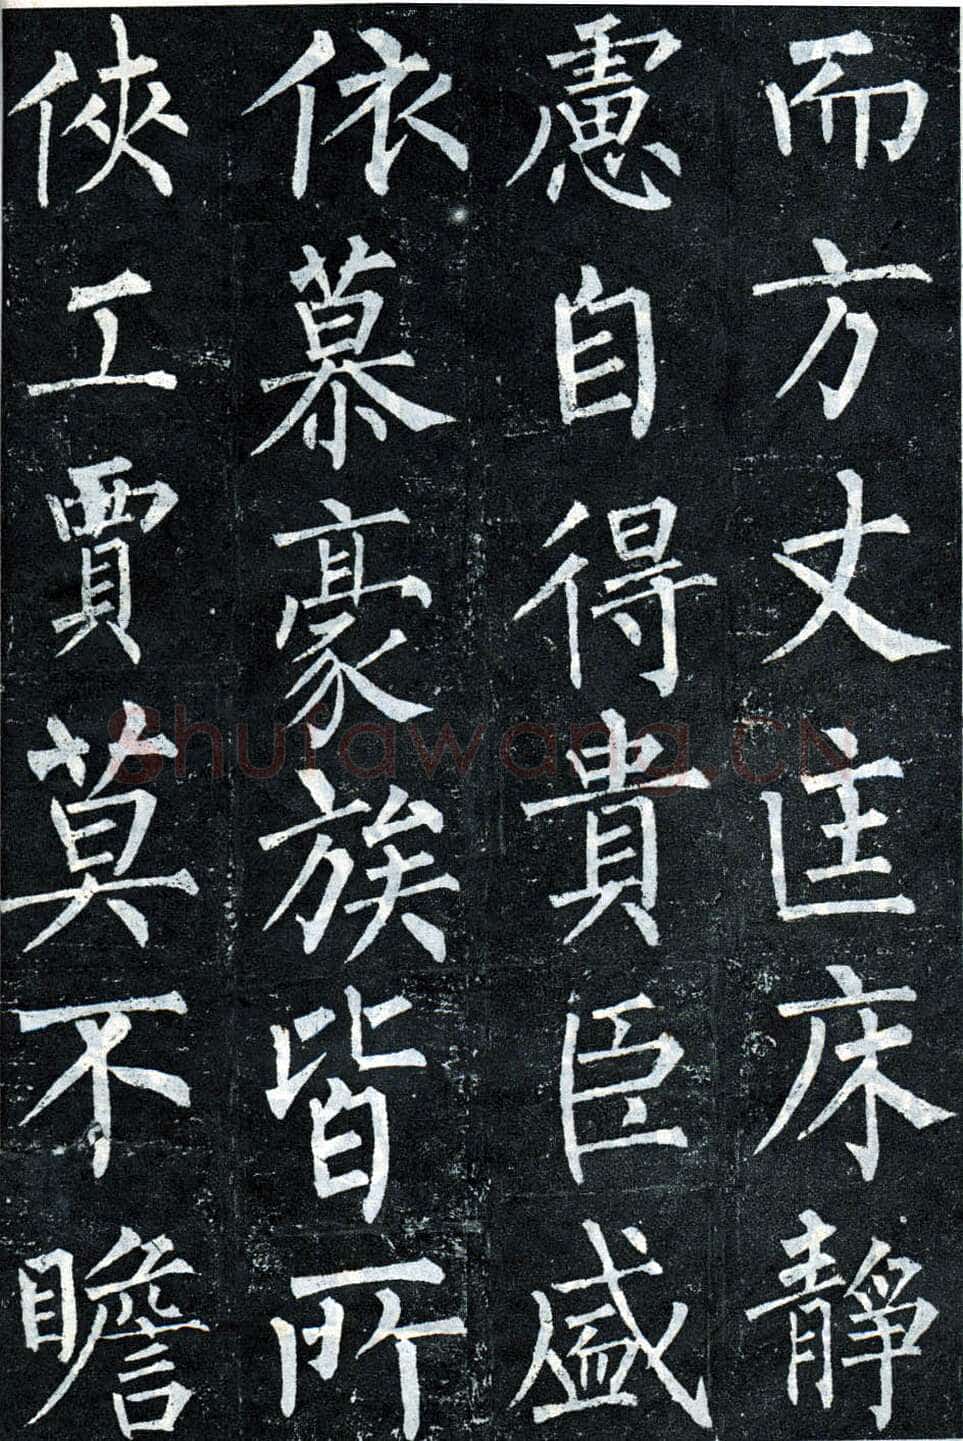 而方丈匡床静
慮自得貴臣盛
族皆所依慕豪
俠工賈莫不瞻
Shufawang.CN